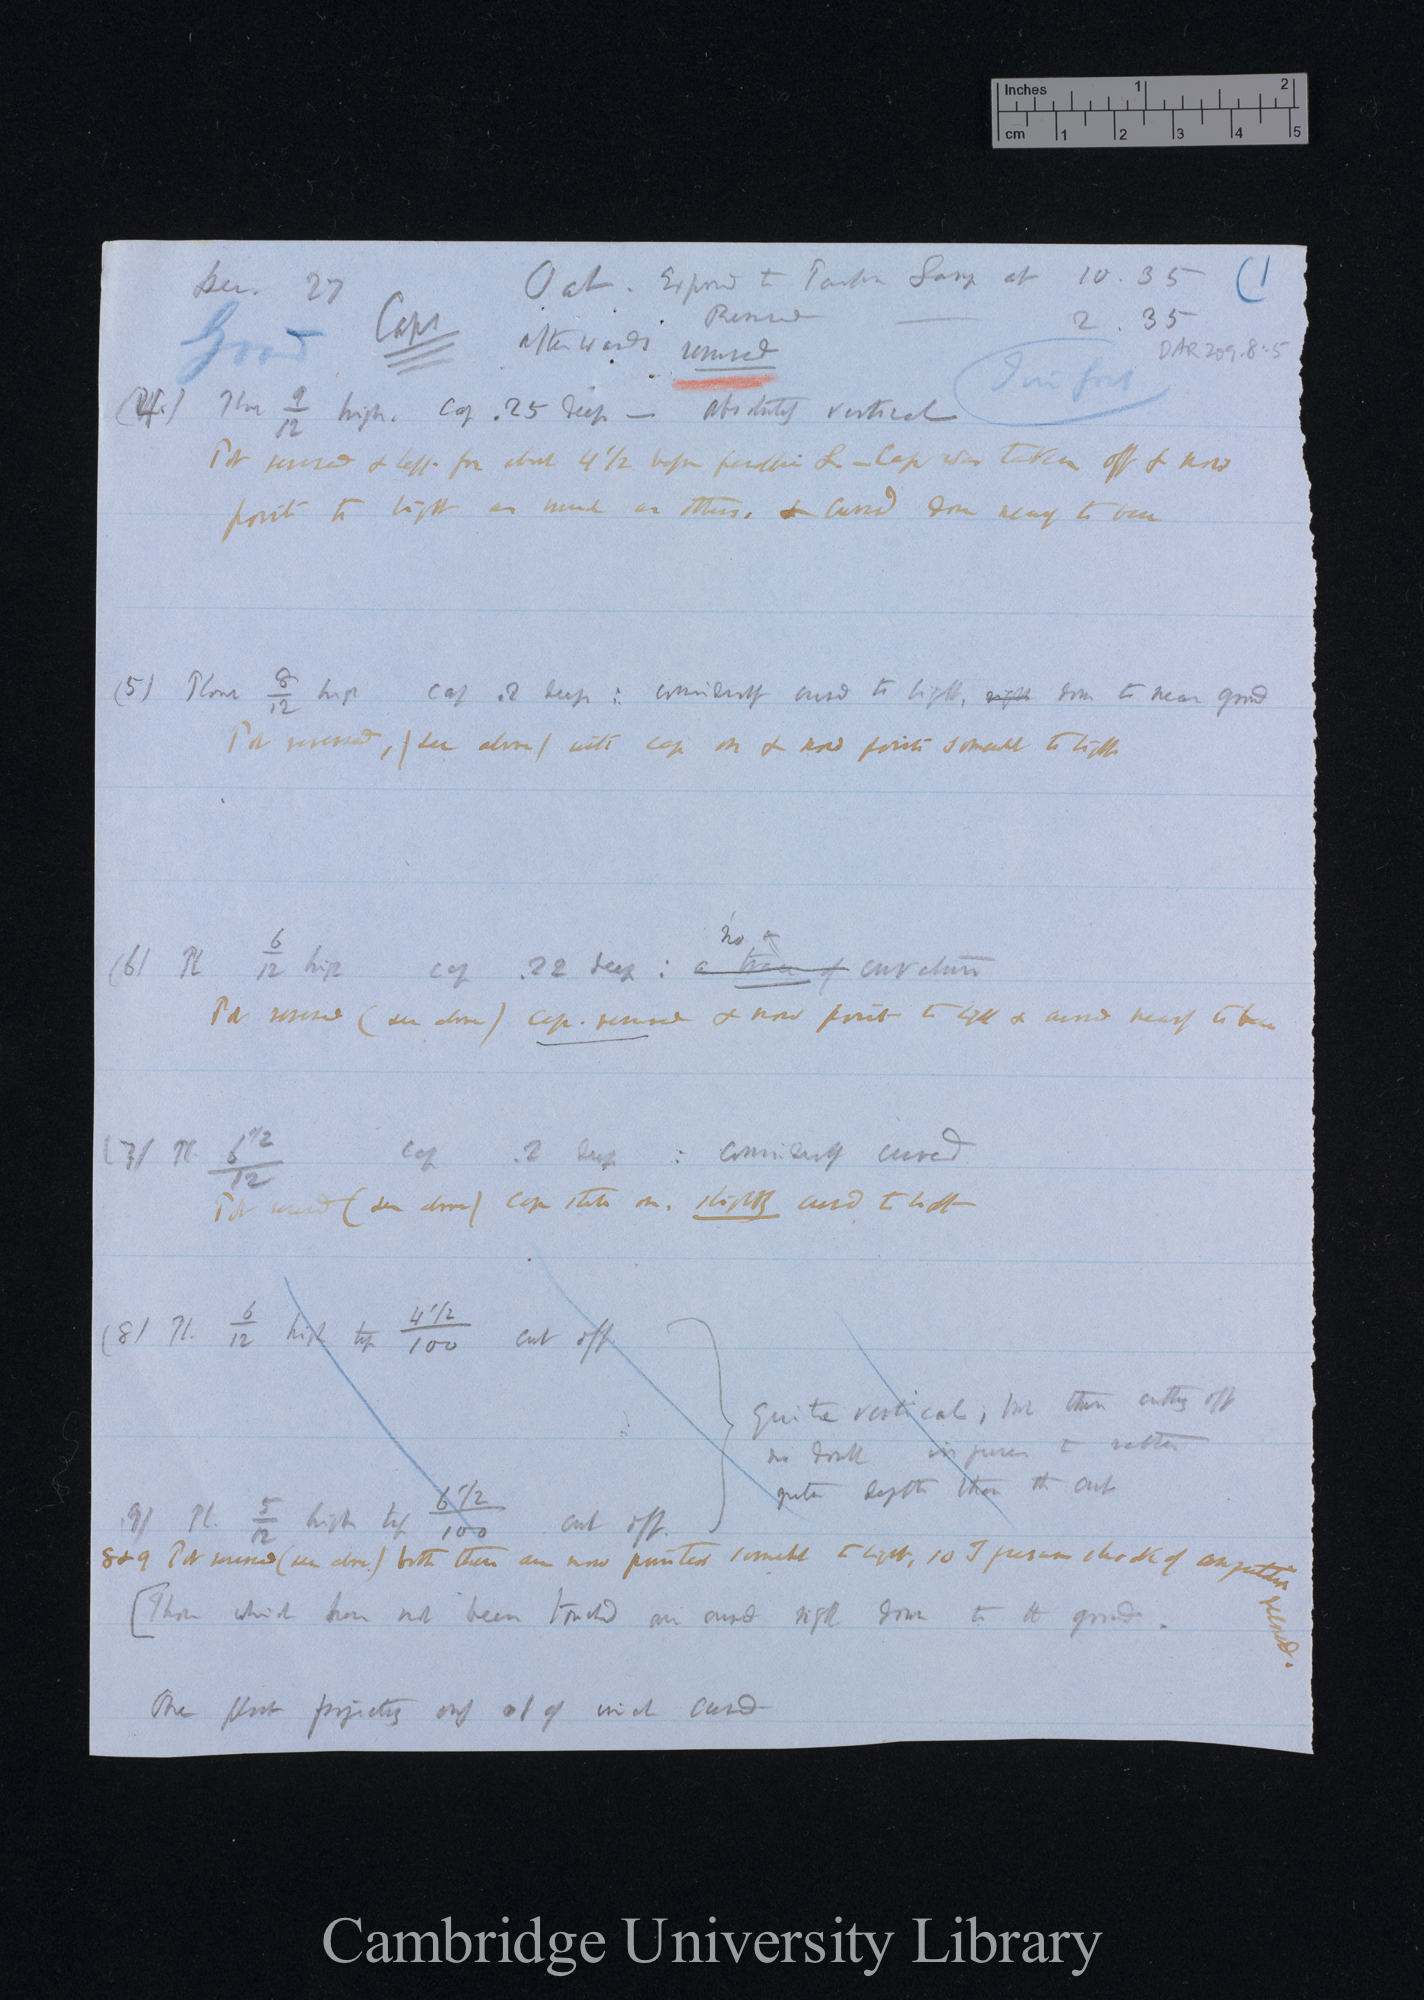 Inches 1 2
cm 1 2 3 4 5
Dec. 27 Oat. Exposed to Paraffin Lamp at 10.35 (1
Good Caps Removed — 2.35
afterwards reversed DAR 209.8:5
(4.) Plant 9/12 high. Cap .25 deep — absolutely vertical
Pot reversed & left for about 4 1/2 before paraffin Lamp Cap was taken off & now
points to light as much as others, & curved down nearly to base
(5) Plant 8/12 high cap .2 deep: considerably curved to light, right down to near ground
Pot reversed, (see above) with cap on & now points somewhat to light
(6) Pl 6/12 high cap .22 deep: a trace of no curvature
Pot reversed (see above) cap removed & now points to light & curved nearly to base
(7) Pl. 6 1/2/12 cap .2 deep: considerably curved
Pot reversed (see above) cap still on. slightly curved to light
(8) Pl. 6/12 high tip 4 1/2/100 cut off
Quite vertical, but then cutting off
no doubt injures to rather
greater depth than the cut
9) Pl. 5/12 high tip 6 1/2/100 cut off.
8 & 9 Pot reversed (see above) both these are now pointed somewhat to light, so I presume shock of amputation
[Those which have not been touched are curved right down to the ground.
One plant projecting only .1 of inch curved
Cambridge University Library